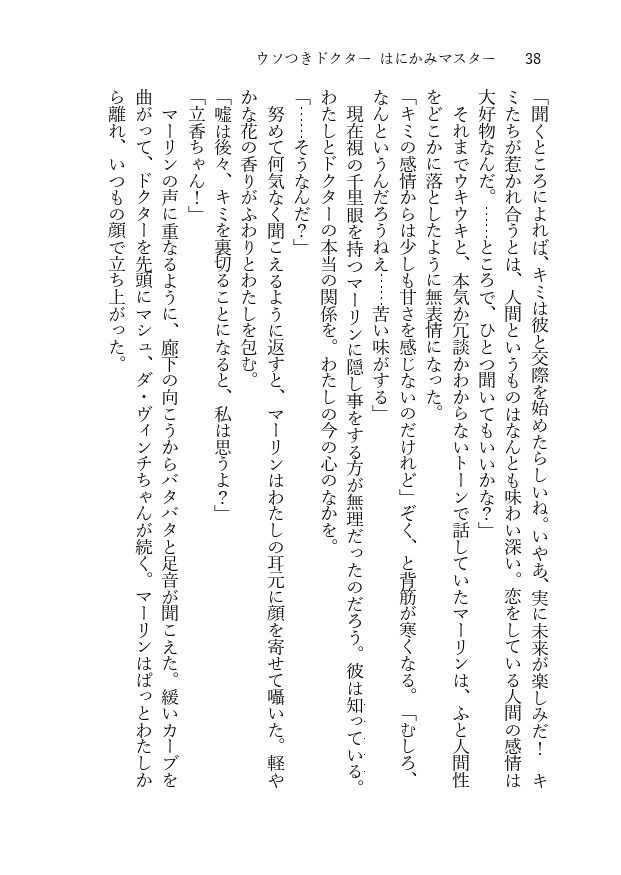 ウソつきドクター はにかみマスター 38
「聞くところによれば、キミは彼と交際を始めたらしいね。いやあ、実に未来が楽しみだ！ キ
ミたちが惹かれ合うとは、人間というものはなんとも味わい深い。恋をしている人間の感情は
大好物なんだ。……ところで、ひとつ聞いてもいいかな？」
それまでウキウキと、本気か冗談かわからないトーンで話していたマーリンは、ふと人間性
をどこかに落としたように無表情になった。
「キミの感情からは少しも甘さを感じないのだけれど」ぞく、と背筋が寒くなる。「むしろ、
なんというんだろうねえ……苦い味がする」
現在視の千里眼を持つマーリンに隠し事をする方が無理だったのだろう。彼は知っている。
わたしとドクターの本当の関係を。わたしの今の心のなかを。
「……そうなんだ？」
努めて何気なく聞こえるように返すと、マーリンはわたしの耳元に顔を寄せて囁いた。軽や
かな花の香りがふわりとわたしを包む。
「嘘は後々、キミを裏切ることになると、私は思うよ？」
「立香ちゃん！」
マーリンの声に重なるように、廊下の向こうからバタバタと足音が聞こえた。緩いカーブを
曲がって、ドクターを先頭にマシュ、ダ・ヴィンチちゃんが続く。マーリンはぱっとわたしか
ら離れ、いつもの顔で立ち上がった。